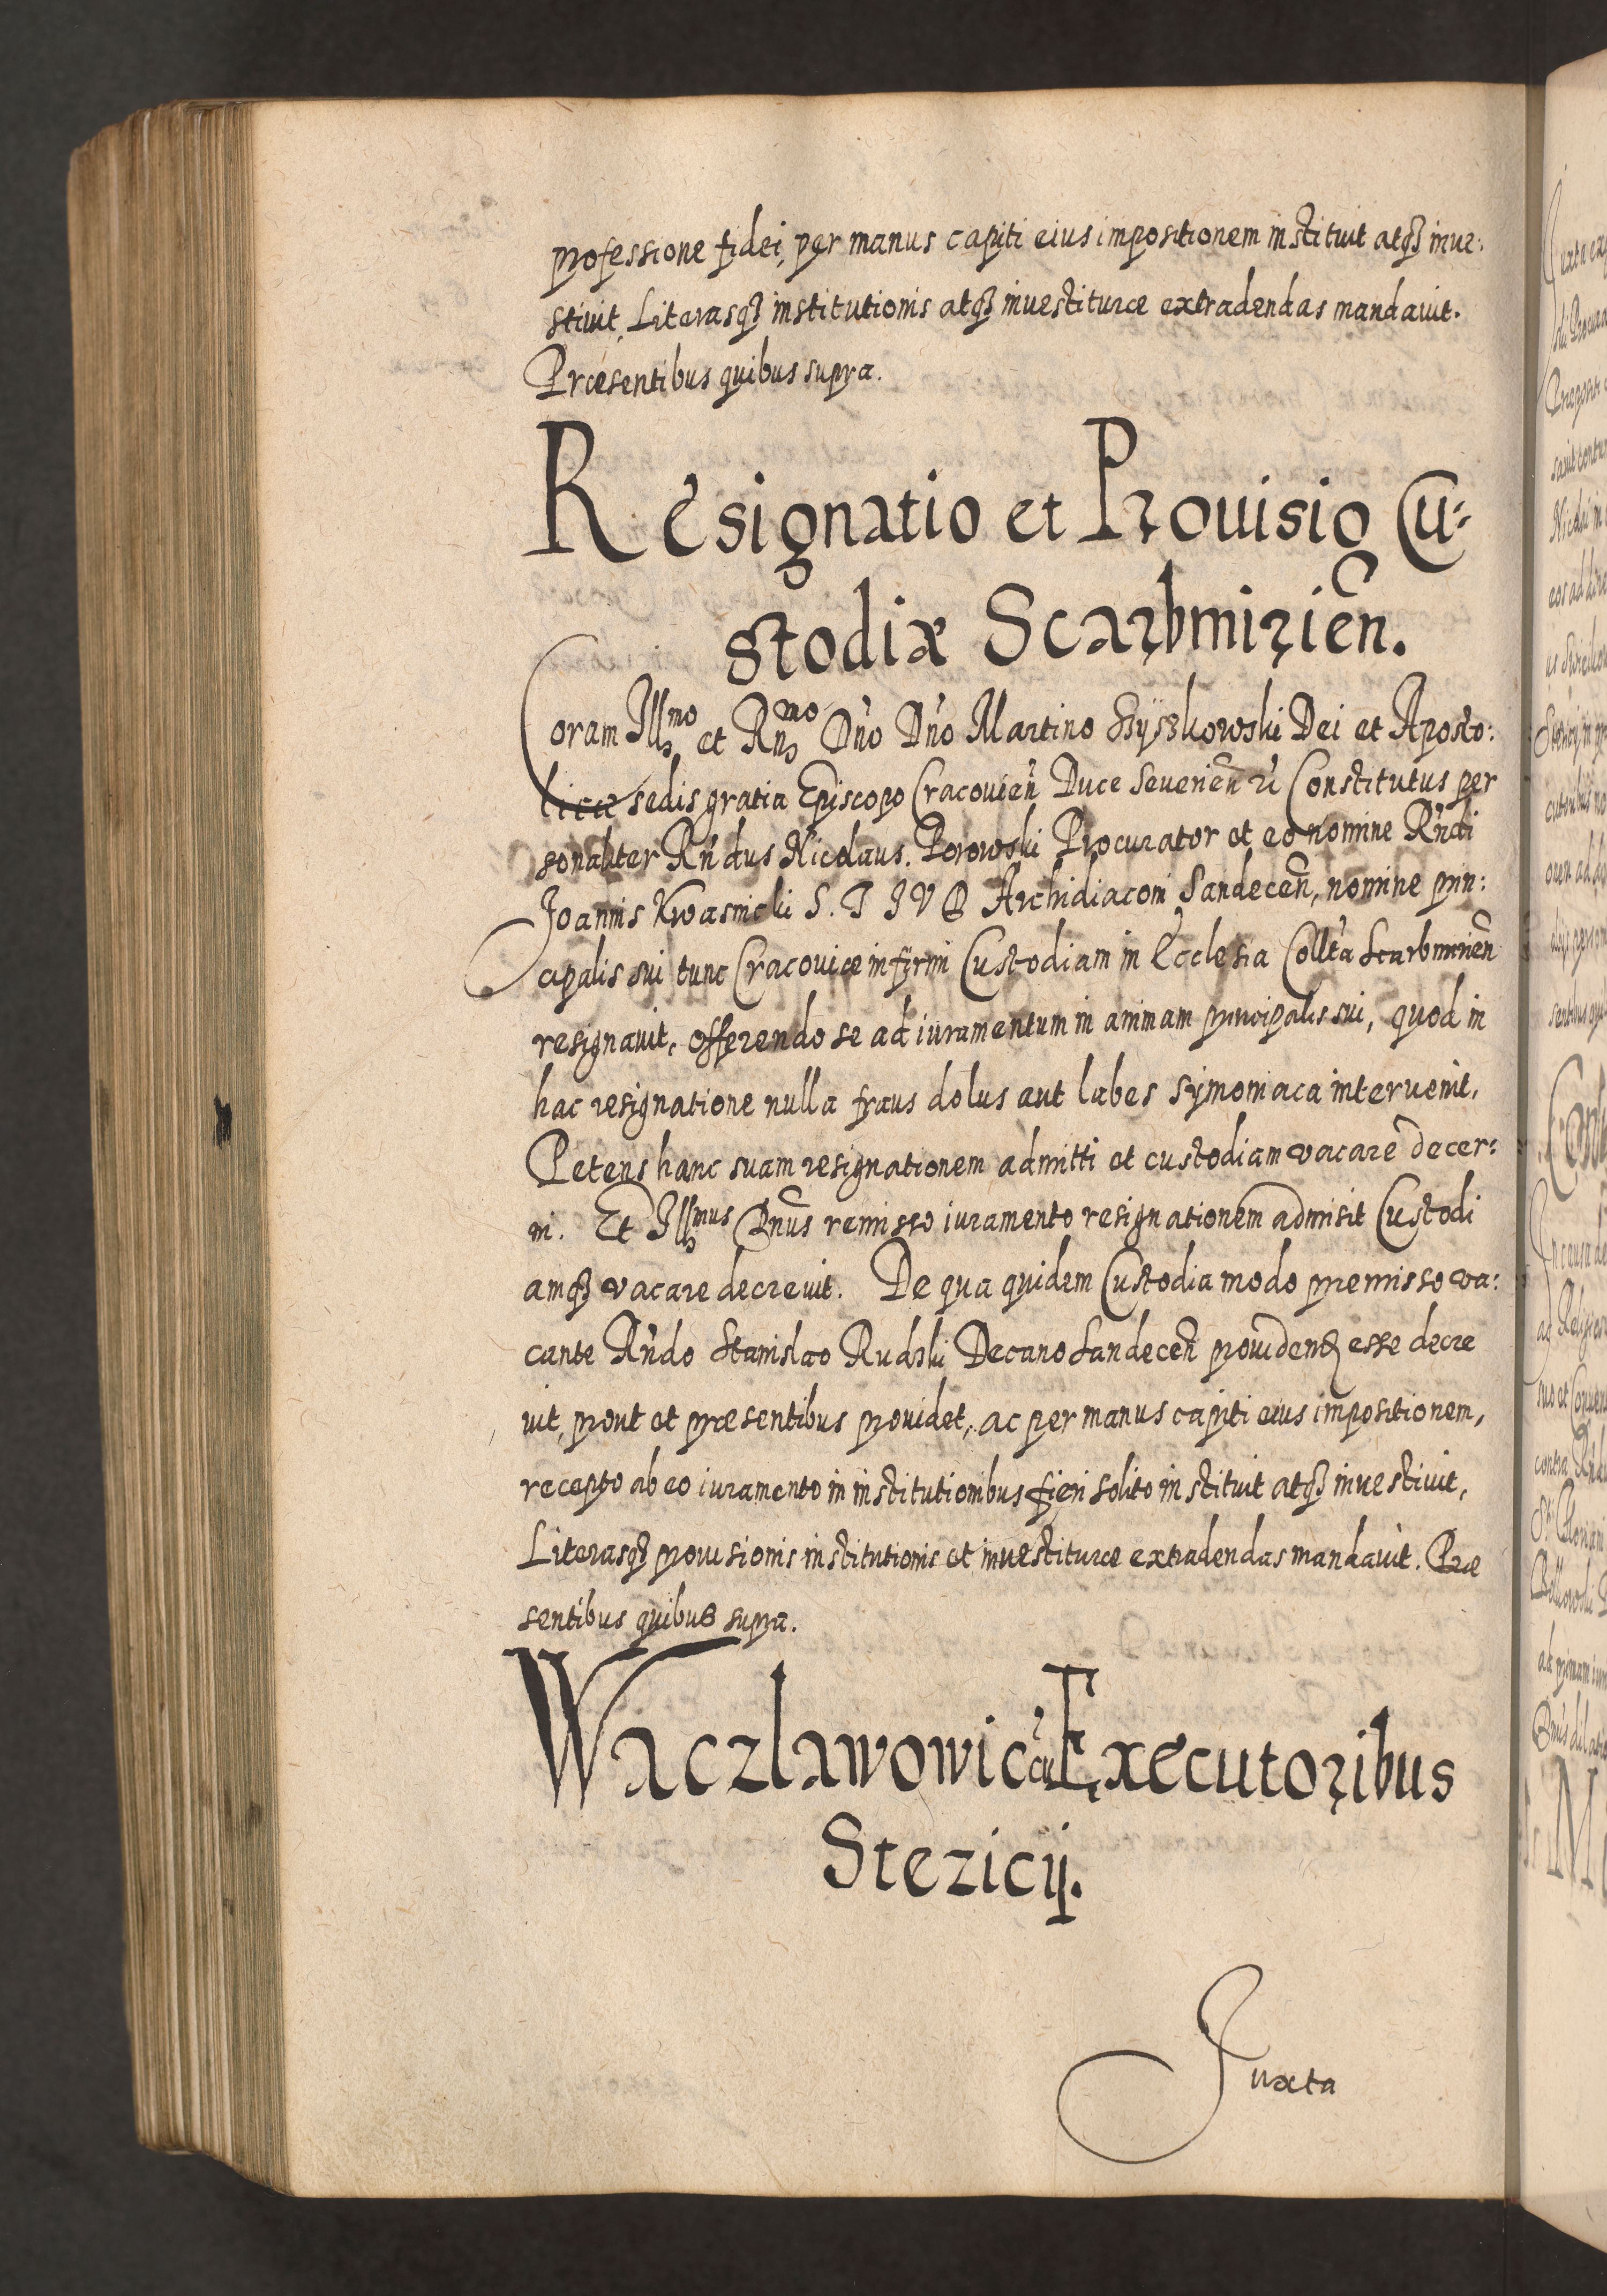 professione fidei, per manus capiti eius impositionem instituit atqꝫ inue:
stiuit, Literasqꝫ institutionis atqꝫ inuestituræ extradendas mandauit.
Præsentibus quibus supra.
Resignatio et Prouisio Cu-
stodiæ Scarbmirien̄.
Coram Illmo et Rnmo Dño Dño Martino Szyszkowski Dei et Aposto:
licæ sedis gratia Episcopo Cracouien̄ Duce Seuerien̄ Constitutus per
sonaliter Rńdus Nicolaus Porowski Procurator et eo nomine Rńdi
Joannis Kwasnicki S. T I V D Archidiaconi Sandecen̄, nomine prin:
cipalis sui tunc Cracouiæ infirmi Custodiam in Ecclesia Collta Scarbmirien̄
resignauit, offerendo se ad iuramentum in animam principalis sui, quod in
hac resignatione nulla fraus dolus aut labes symoniaca interuenit,
Petens hanc suam resignationem admitti et custodiam vacare decer:
ni. Et Illmus Dnus remisso iuramento resignationem admisit Custodi
amqꝫ vacare decreuit. De qua quidem Custodia modo premisso va:
cante Rńdo Stanislao Rudzki Decano Sandecen̄ prouidenꝫ esse decre
uit, prout et præsentibus prouidet, ac per manus capiti eius impositionem,
recepto ab eo iuramento in institutionibus fieri solito instituit atqꝫ inuestiuit,
Literasqꝫ prouisionis institutionis et inuestituræ extradendas mandauit. Præ
sentibus quibus supra.
Waczlawowic cū Executoribus
Stezicij.
Juxta